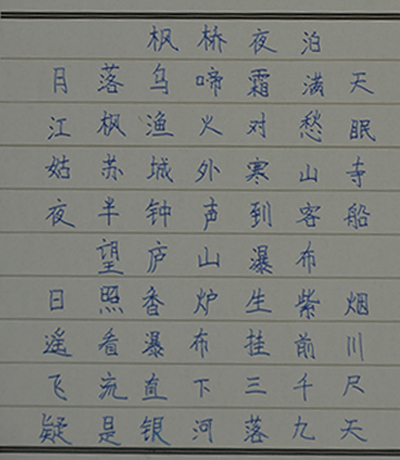 枫桥夜泊
月落乌啼霜满天
江枫渔火对愁眠
姑苏城外寒山寺
夜半钟声到客船
望庐山瀑布
日照香炉生紫烟
遥看瀑布挂前川
飞流直下三千尺
疑是银河落九天